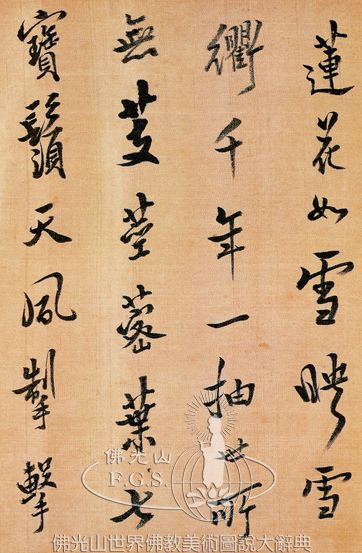 蓮花如雪映雪
衢千年一抽世所
無芰莖蔤葉七
寶鬚天風掣擊
佛光山
F.G.S.
佛光山世界佛教美術圖說大辭典